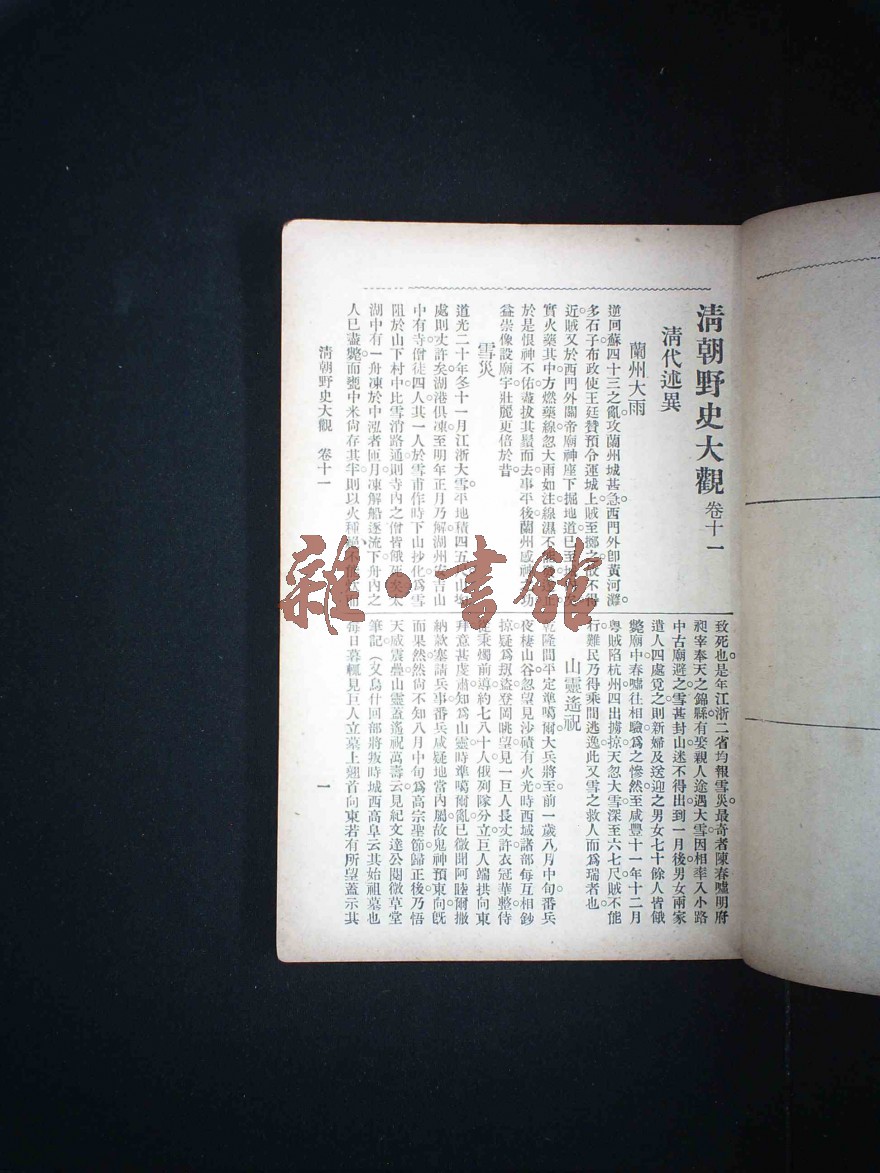 清朝野史大觀 卷十一
清代述異
蘭州大雨
逆回蘇四十三之亂。攻蘭州城甚急。西門外卽黃河灘
多石子。布政使王廷贊預令運城上。賊至擲之。賊不得
近。賊又於西門外關帝廟神座下掘地道。已至
實火藥其中。方燃藥線。忽大雨如注。線濕不
於是恨神不佑。盡拔其鬚而去。事平後。蘭州感神功
益崇像設。廟宇壯麗。更倍於昔。
雪災
道光二十年冬十一月。江浙大雪。平地積四五 山
處則丈許矣。湖港俱凍。至明年正月乃解。湖州 吉山
中有寺。僧徒四人。其一人於雪甫作時下山抄化。爲雪
阻於山下村中。比雪消路通。則寺內之僧皆餓死矣。太
湖中有一舟凍於中泓者匝月。凍解船逐流下。舟內之
人已盡斃。而甕中米尙存其半。則以火種
清朝野史大觀 卷十一
致死也。是年江浙二省均報雪災。最奇者。陳春嘘明府
昶宰奉天之錦縣。有娶親人途遇大雪。因相率入小路
中古廟避之。雪甚封山。迷不得出。到一月後。男女兩家
遣人四處覓之。則新婦及送迎之男女七十餘人。皆餓
斃廟中。春嘘往相驗。爲之慘然。至咸豐十一年十二月
粤賊陷杭州。四出擄掠。天忽大雪。深至六七尺。賊不能
行。難民乃得乘間逃逸。此又雪之救人而爲瑞者也。
山靈遙祝
乾隆間。平定準噶爾。大兵將至。前一歲八月中旬。番兵
夜棲山谷。忽望見沙磧有火光。時西域諸部每互相鈔
掠。疑爲刼盜。登岡眺望。見一巨人長丈許。衣冠華整。侍
從秉燭前導。約七八十人。俄列隊分立。巨人端拱向東
拜。意甚虔肅。知爲山靈。時準噶爾亂。已微聞阿睦爾撒
納款塞請兵事。番兵咸疑地當內屬。故鬼神預東向。旣
而果然。然尙不知八月中旬爲高宗聖節。歸正後乃悟
天威震疊。山靈蓋遙祝萬壽云。見紀文達公閱微草堂
筆記。（又烏什回部將叛時。城西高阜云其始祖墓也
每日暮。輒見巨人立墓上。翹首向東。若有所望。蓋示其
一
雜·書館